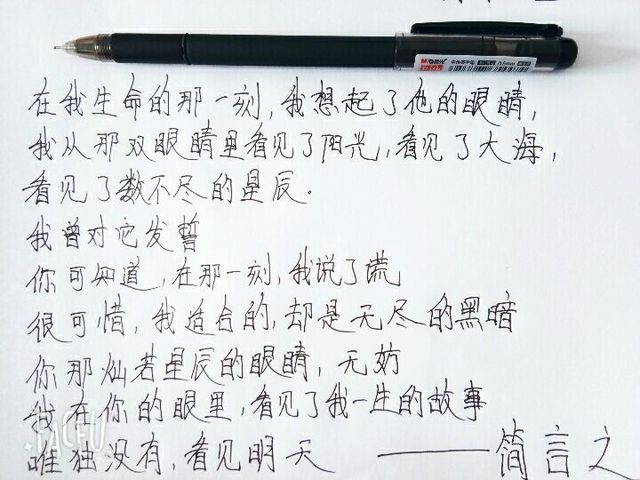 在我生命的那一刻,我想起了他的眼睛,
我从那双眼睛里看见了阳光,看见了大海,
看见了数不尽的星辰。
我曾对它发誓
你可知道,在那一刻,我说了谎
很可惜,我适合的,却是无尽的黑暗
你那灿若星辰的眼睛,无妨
我在你的眼里,看见了我一生的故事
唯独没有,看见明天 ——简言之